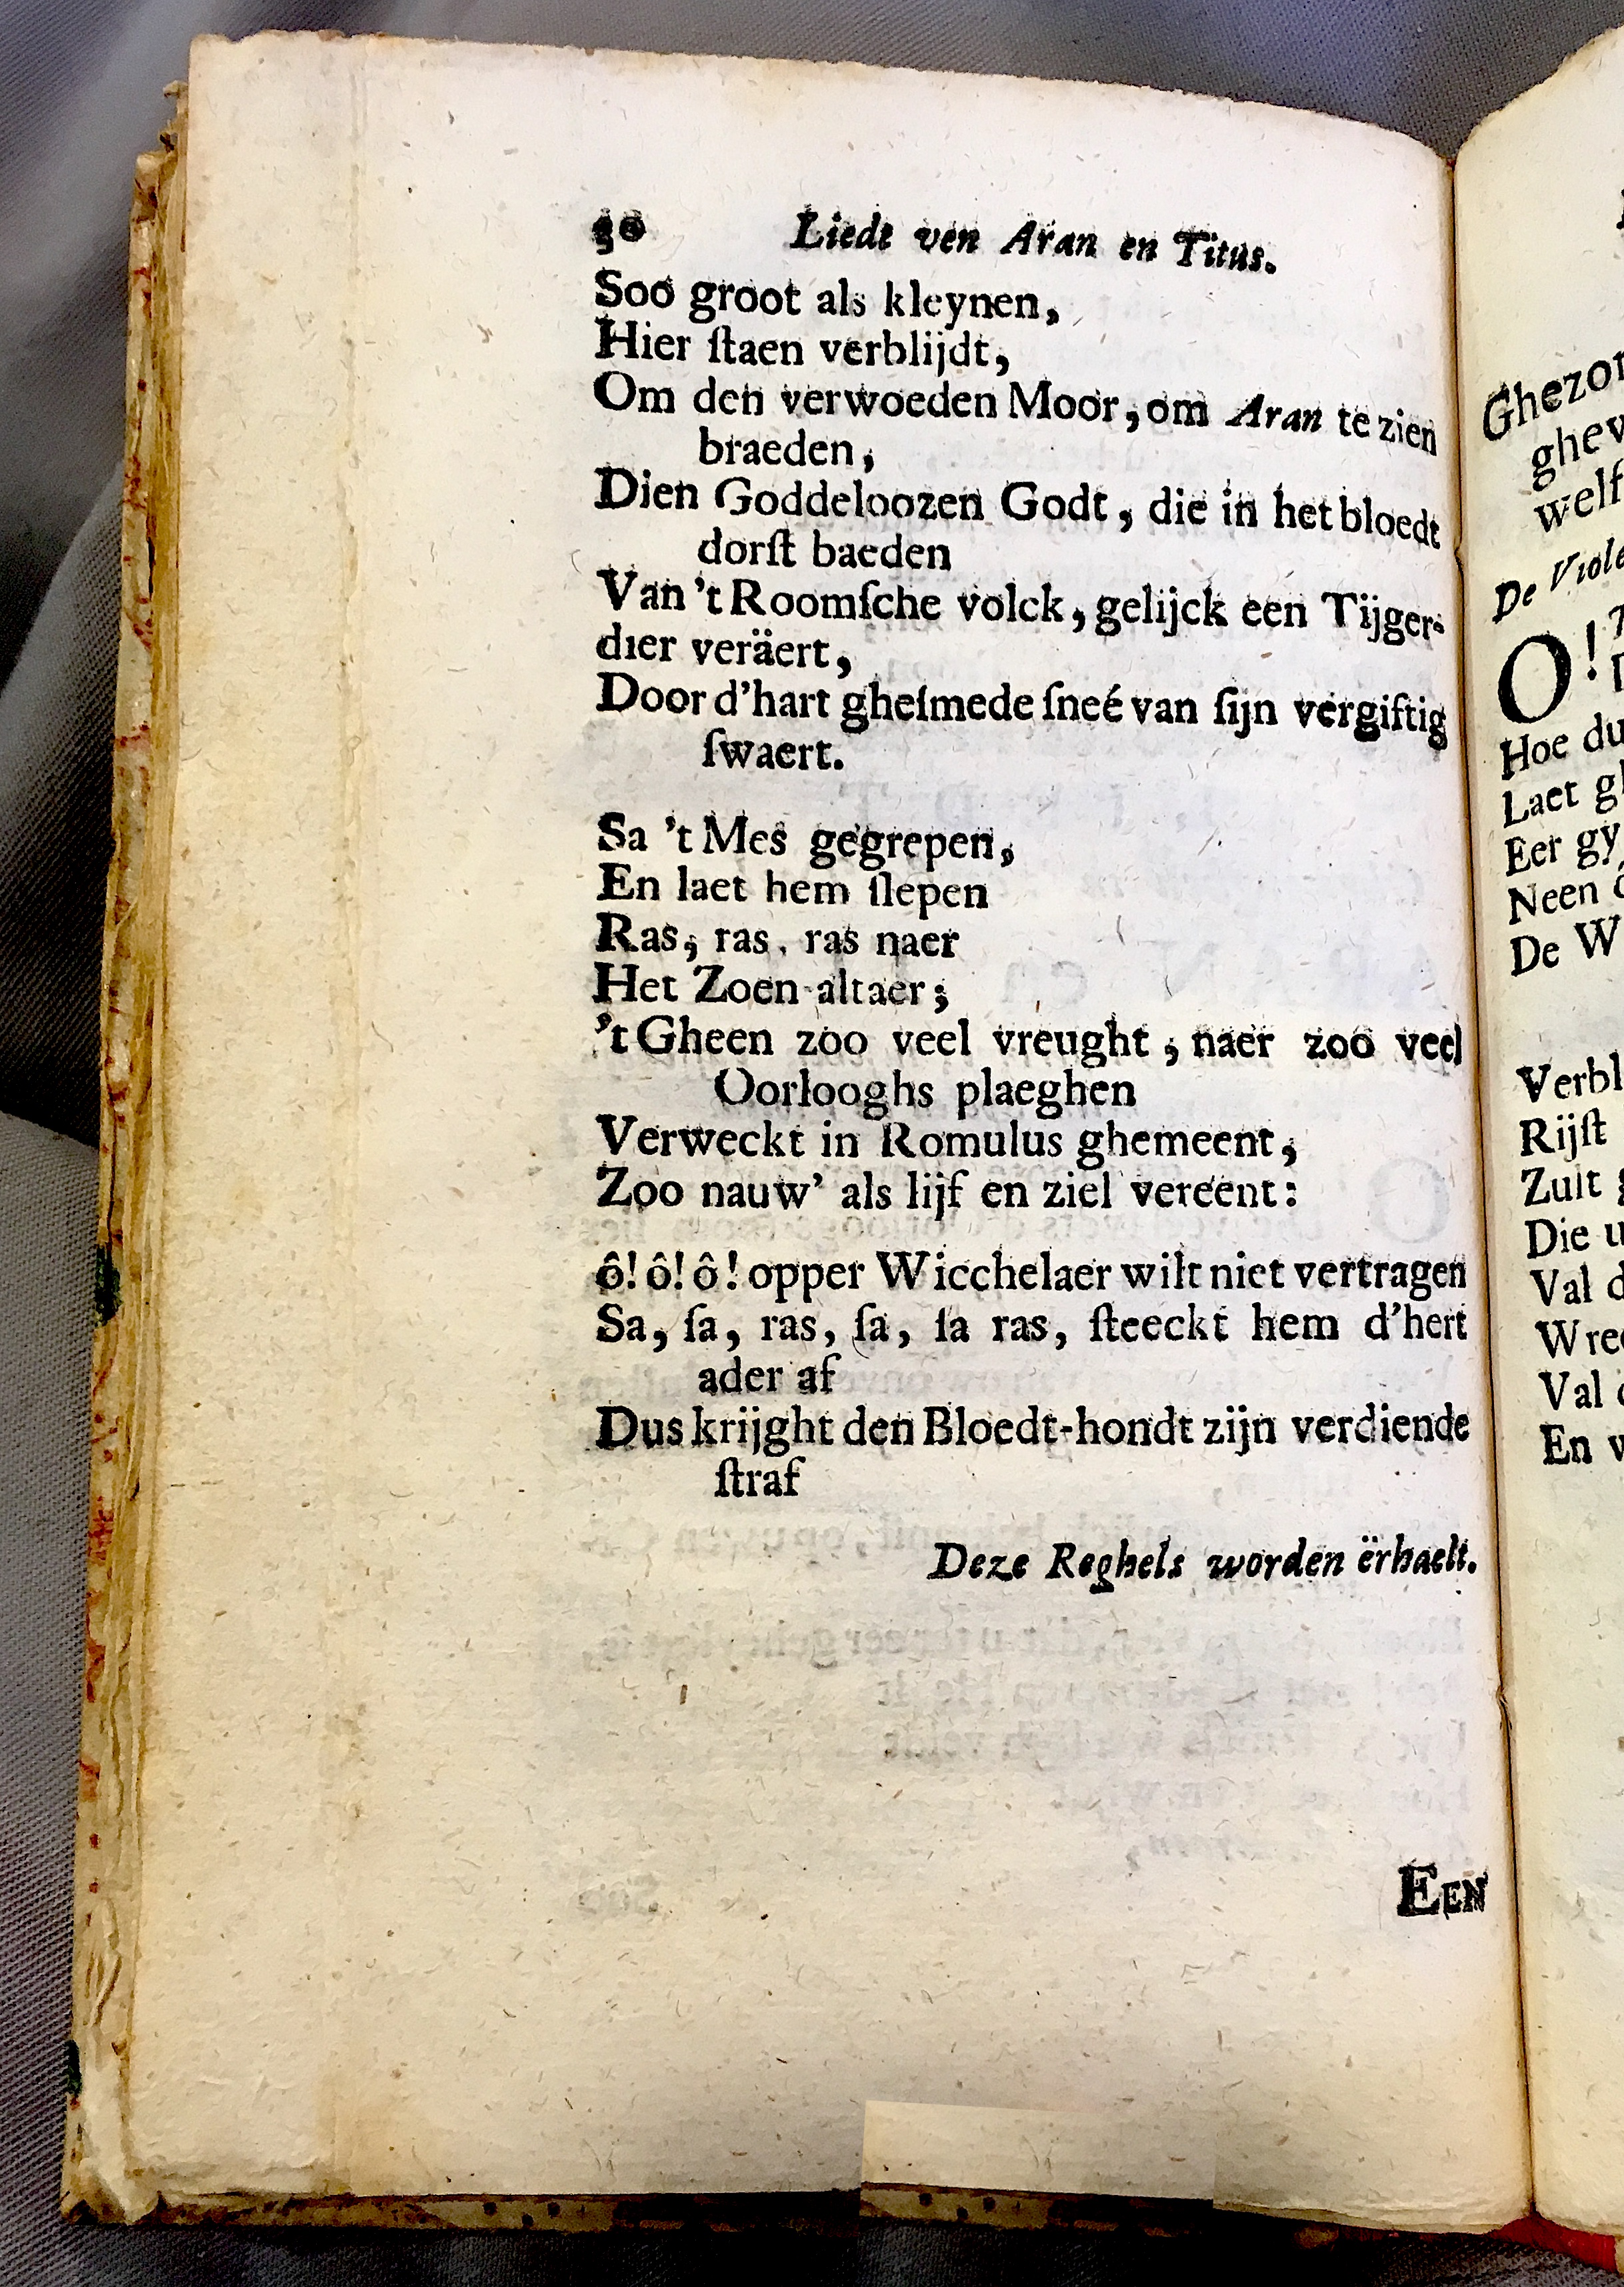 50 Liedt ven Aran en Titus.
Soo groot als kleynen,
Hier ſtaen verblijdt,
Om den verwoeden Moor, om Aran te zien
braeden,
Dien Goddeloozen Godt, die in het bloedt
dorſt baeden
Van 't Roomſche volck, gelijck een Tijger-
dier veräert,
Door d'hart gheſmede ſneé van ſijn vergiftig
ſwaert.
Sa 't Mes gegrepen,
En laet hem ſlepen
Ras, ras, ras naer
Het Zoen-altaer;
't Gheen zoo veel vreught, naer zoo veel
Oorlooghs plaeghen
Verweckt in Romulus ghemeent,
Zoo nauw' als lijf en ziel vereent:
ô! ô! ô! opper Wicchelaer wilt niet vertragen
Sa, ſa, ras, ſa, ſa ras, ſteeckt hem d'hert
ader af
Dus krijght den Bloedt-hondt zijn verdiende
ſtraf
Deze Reghels worden ërhaelt.
EEN
Ghezon
ghev
welf
De Viole
O!
Hoe du
Laet gh
Eer gy
Neen
De W
Verbl
Rijſt
Zult
Die u
Val d
Wree
Val
En v